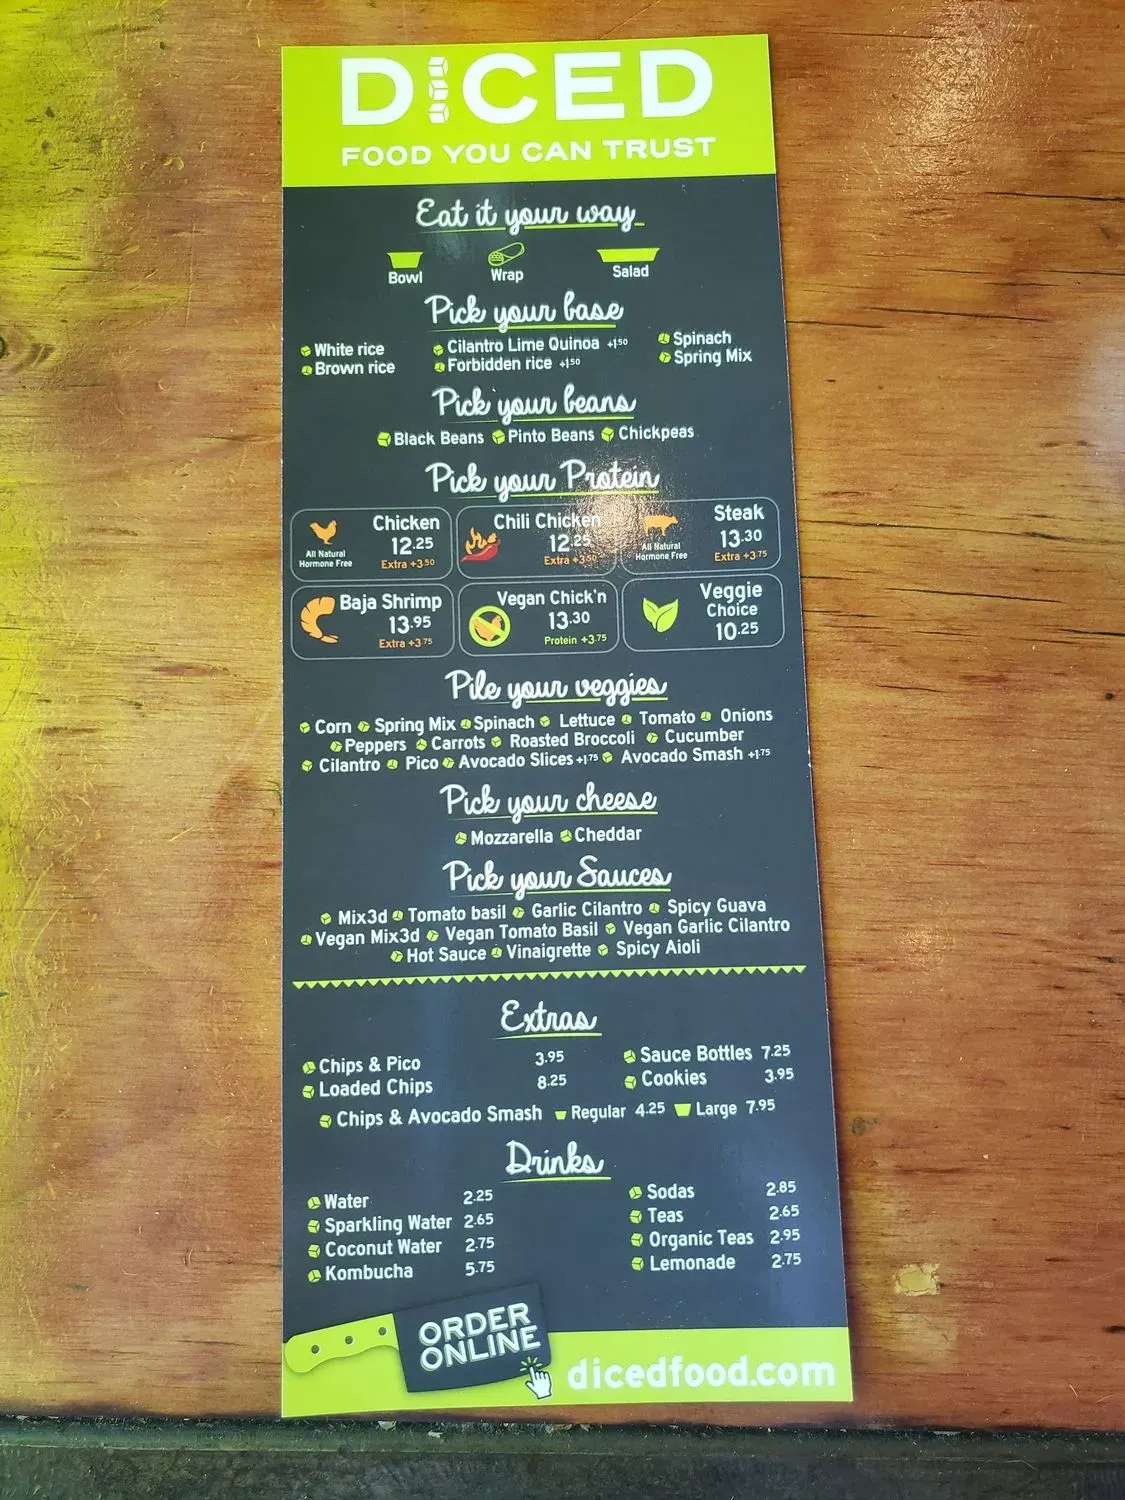 DICED
FOOD YOU CAN TRUST
Eat it your way
Bowl Wrap Salad
Pick your base
White rice Cilantro Lime Quinoa +1.50 Spinach
Brown rice Forbidden rice +1.50 Spring Mix
Pick your beans
Black Beans Pinto Beans Chickpeas
Pick your Protein
Chicken
12.25
All Natural
Hormone Free
Extra +3.50
Chili Chicken
12.25
Extra +3.50
Steak
13.30
All Natural
Hormone Free
Extra +3.75
Baja Shrimp
13.95
Extra +3.75
Vegan Chick'n
13.30
Protein +3.75
Veggie
Choice
10.25
Pile your veggies
Corn Spring Mix Spinach Lettuce Tomato Onions
Peppers Carrots Roasted Broccoli Cucumber
Cilantro Pico Avocado Slices +1.75 Avocado Smash +1.75
Pick your cheese
Mozzarella Cheddar
Pick your Sauces
Mix3d Tomato basil Garlic Cilantro Spicy Guava
Vegan Mix3d Vegan Tomato Basil Vegan Garlic Cilantro
Hot Sauce Vinaigrette Spicy Aioli
Extras
Chips & Pico 3.95 Sauce Bottles 7.25
Loaded Chips 8.25 Cookies 3.95
Chips & Avocado Smash Regular 4.25 Large 7.95
Drinks
Water 2.25 Sodas 2.85
Sparkling Water 2.65 Teas 2.65
Coconut Water 2.75 Organic Teas 2.95
Kombucha 5.75 Lemonade 2.75
ORDER
ONLINE
dicedfood.com